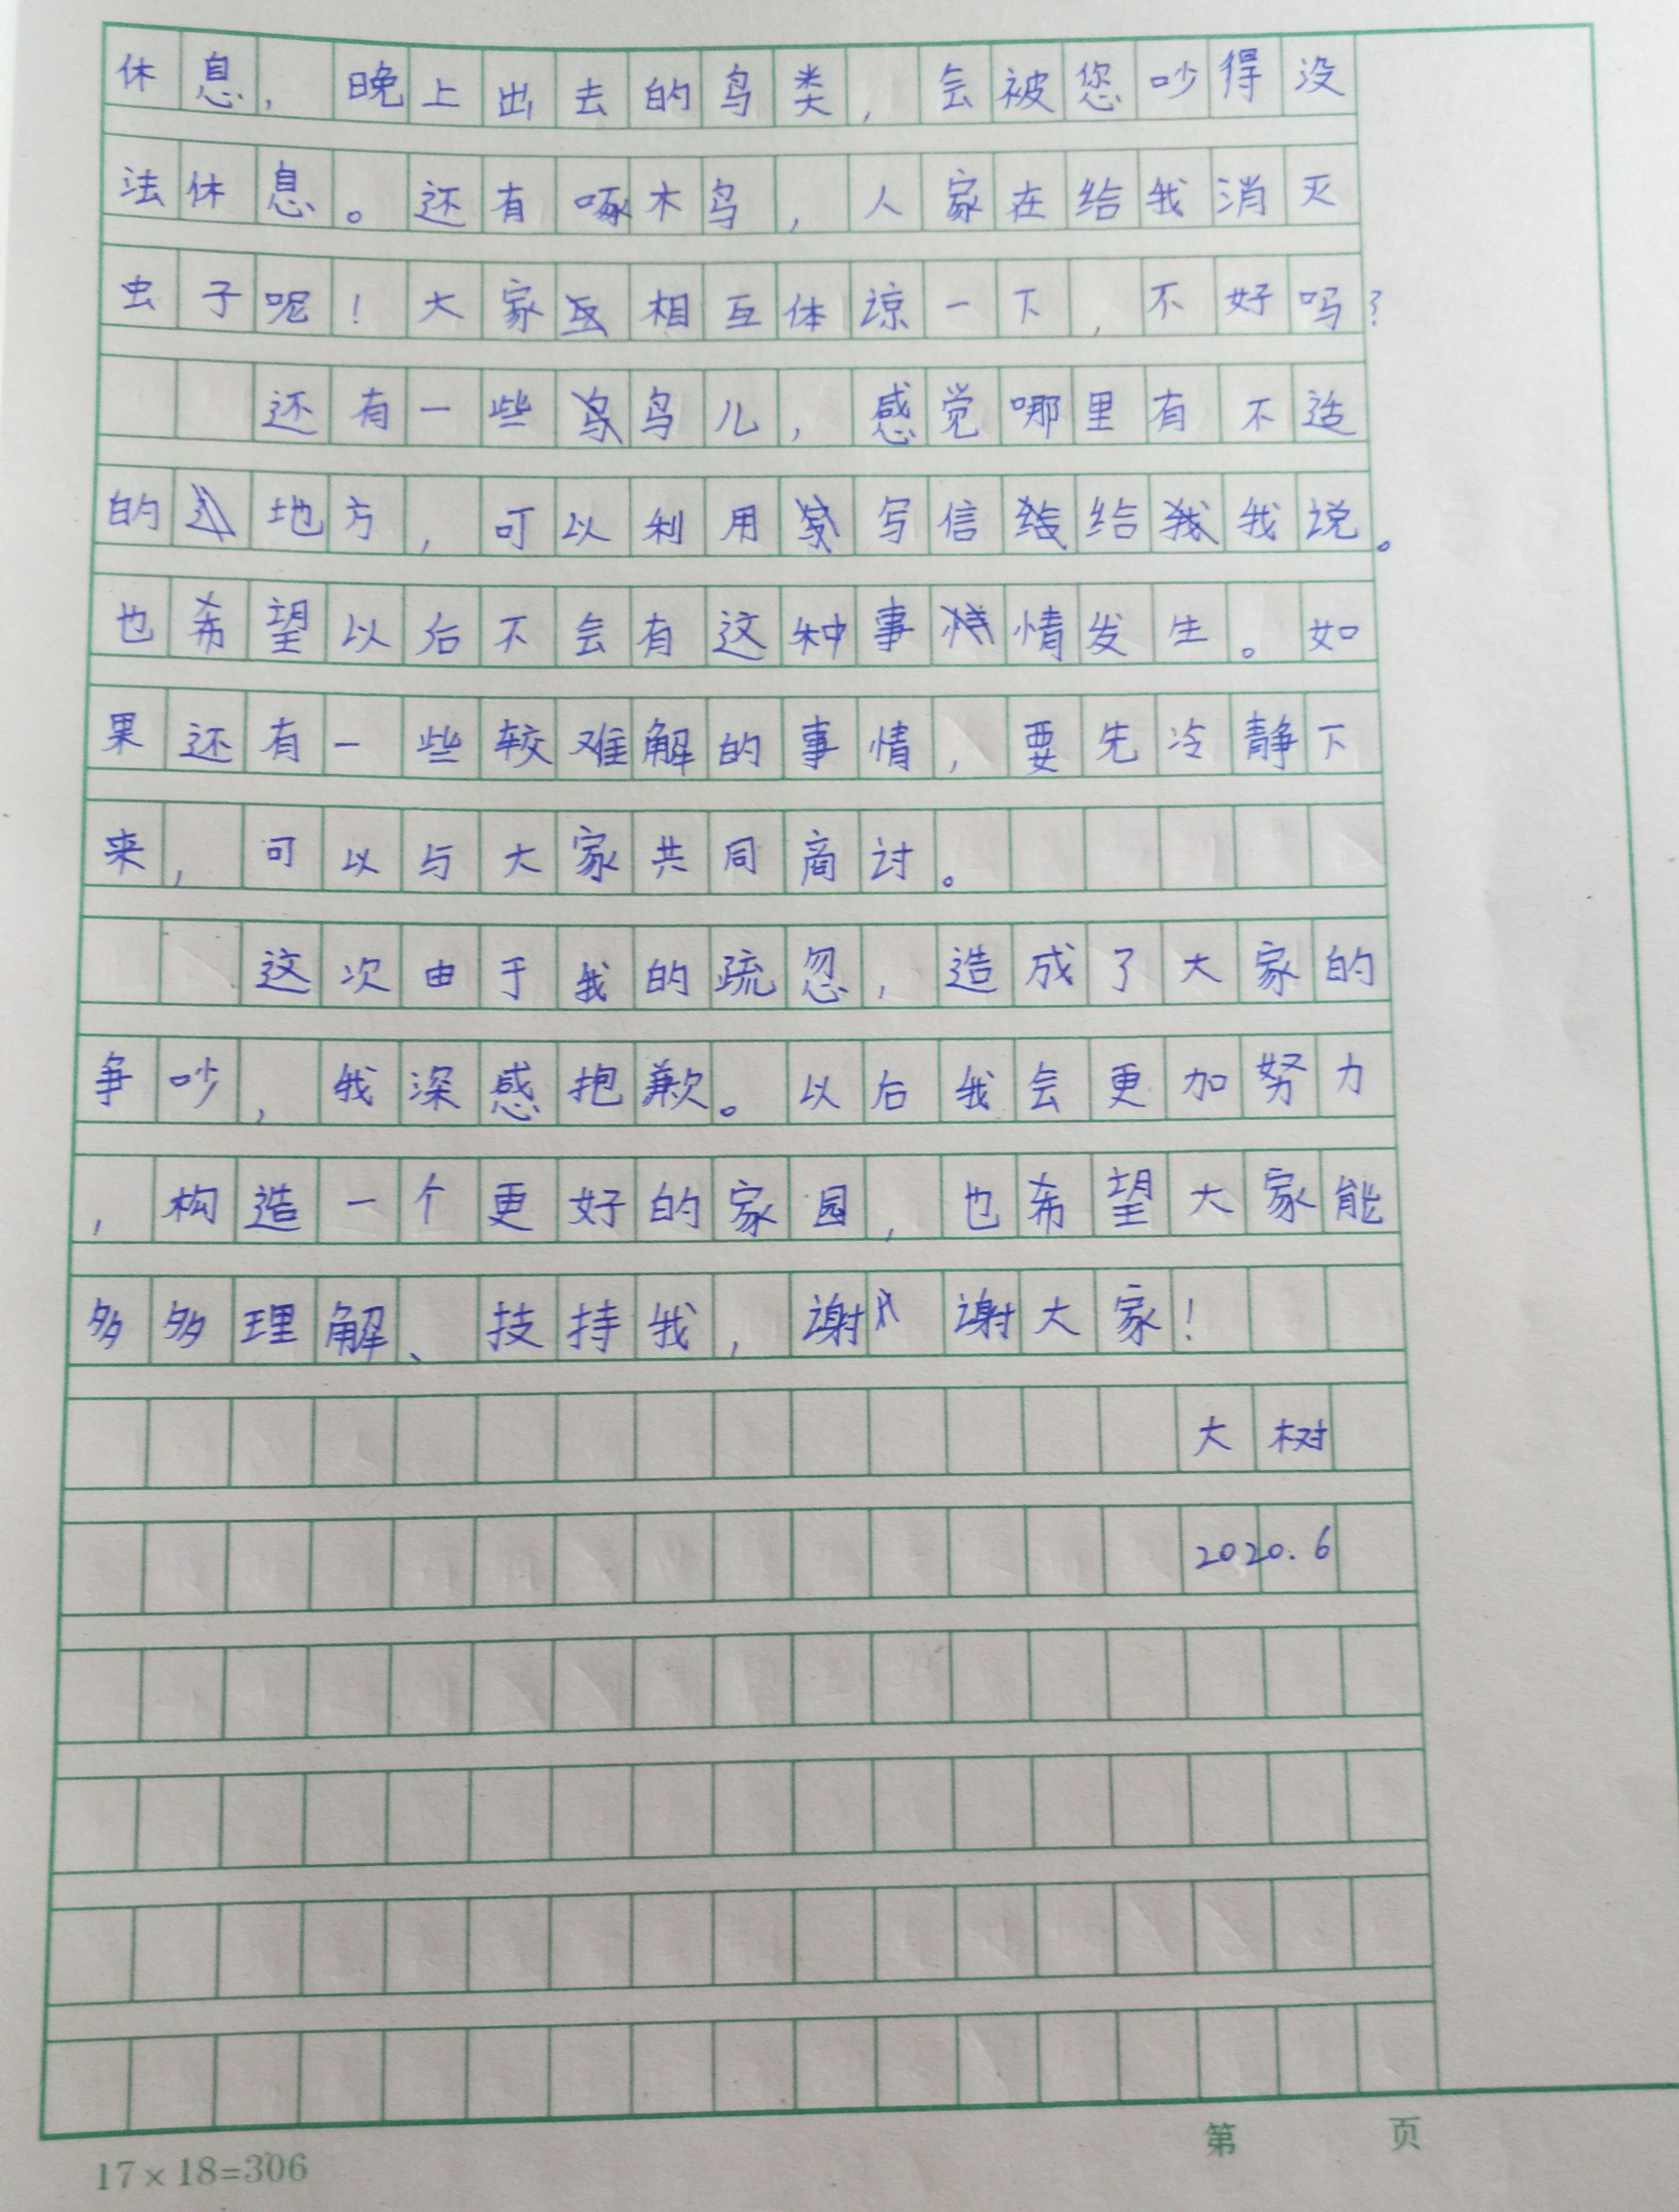 休息，晚上出去的鸟类，会被您吵得没
法休息。还有啄木鸟，人家在给我消灭
虫子呢！大家相互体谅一下，不好吗？
还有一些鸟儿，感觉哪里有不适
的地方，可以利用写信给我说。
也希望以后不会有这种事情发生。如
果还有一些较难解的事情，要先冷静下
来，可以与大家共同商讨。
这次由于我的疏忽，造成了大家的
争吵，我深感抱歉。以后我会更加努力
，构造一个更好的家园，也希望大家能
多多理解、技持我，谢谢大家！
大树
2020.6
17×18=306
第 页